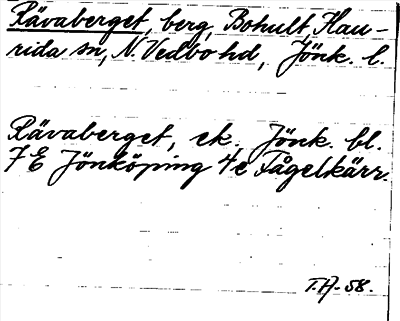 Rävaberget, berg, Bohult, Hau-
rida sn, N. Vedbo hd, Jönk. l.
Rävaberget, ek. Jönk. bl.
7 E Jönköping 4 e Fågelkärr.
T.A. 58.